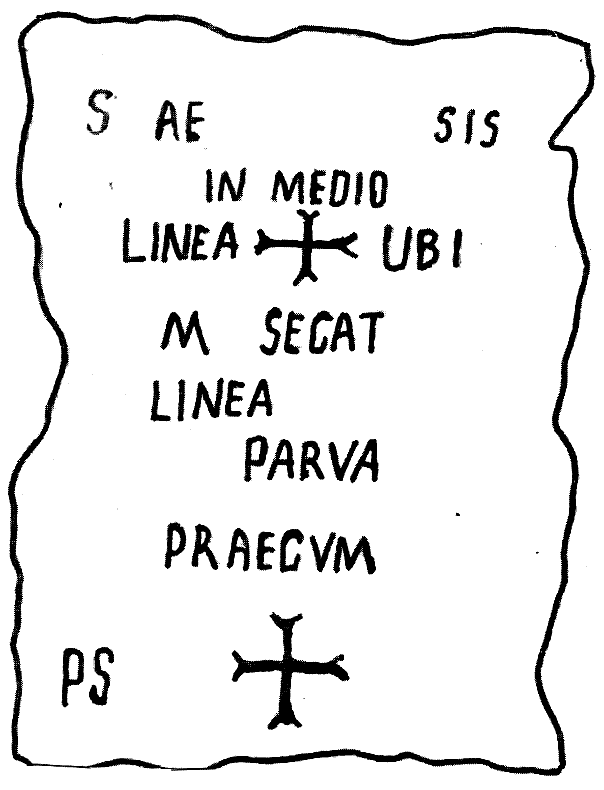 S AE SIS
IN MEDIO
LINEA UBI
M SECAT
LINEA
PARVA
PRAECVM
PS